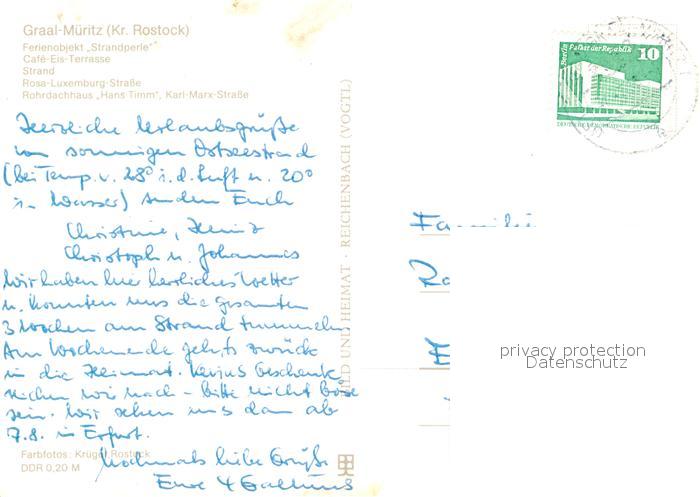 Graal-Müritz (Kr. Rostock)
Ferienobjekt „Strandperle“
Café-Eis-Terrasse
Strand
Rosa-Luxemburg-Straße
Rohrdachhaus „Hans Timm“, Karl-Marx-Straße
Herzliche Urlaubsgrüße
vom sonnigen Ostseestrand
(bei Temp. v. 28° i. d. Luft u. 20°
im Wasser) senden Euch
Christine, Heinz
Christoph u. Johannes
Wir haben hier herrliches Wetter
u. konnten uns die gesamten
3 Wochen am Strand tummeln.
Am Wochenende geht's zurück
in die Heimat. Geschenk
reichen wir nach – bitte nicht böse
sein. Wir sehen uns dann ab
7.8. in Erfurt.
Nochmals liebe Grüße
Eure 4
Farbfotos: Krüger, Rostock
DDR 0,20 M
BILD UND HEIMAT · REICHENBACH (VOGTL)
Berlin Palast der Republik 10
DEUTSCHE DEMOKRATISCHE REPUBLIK
Familie
privacy protection
Datenschutz